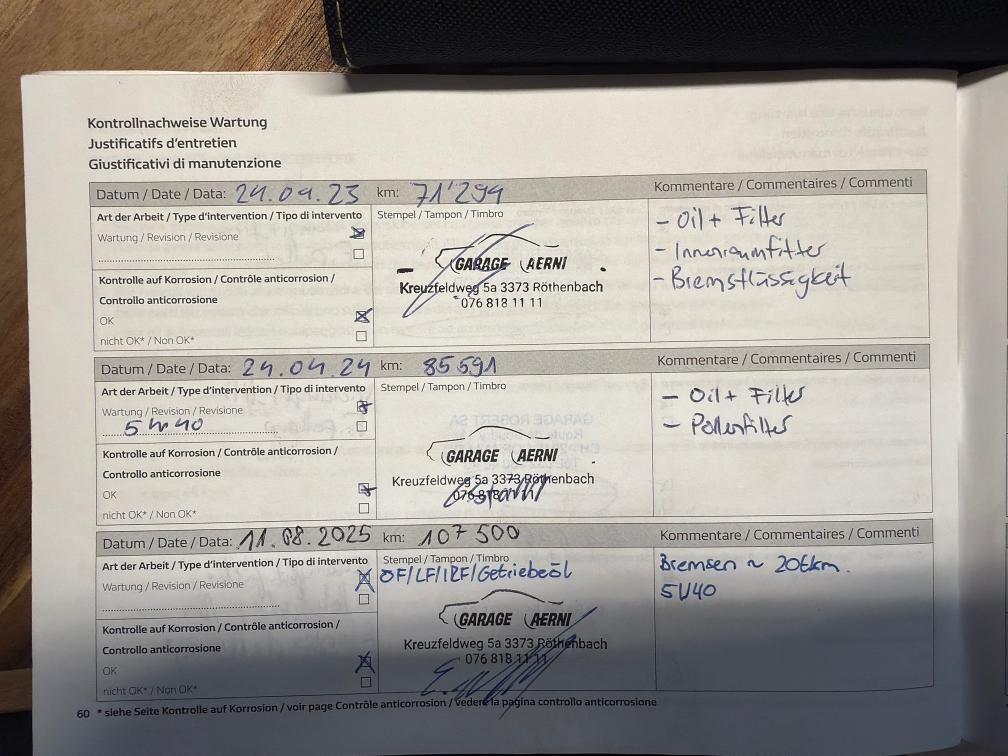 Kontrollnachweise Wartung
Justificatifs d'entretien
Giustificativi di manutenzione
Datum / Date / Data: 24.04.23 km: 71'294 Kommentare / Commentaires / Commenti
Art der Arbeit / Type d'intervention / Tipo di intervento
Wartung / Revision / Revisione
Kontrolle auf Korrosion / Contrôle anticorrosion /
Controllo anticorrosione
OK
nicht OK* / Non OK*
Stempel / Tampon / Timbro
GARAGE AERNI
Kreuzfeldweg 5a 3373 Röthenbach
076 818 11 11
- Oil + Filter
- Innenraumfilter
- Bremsflüssigkeit
Datum / Date / Data: 24.04.24 km: 85591 Kommentare / Commentaires / Commenti
Art der Arbeit / Type d'intervention / Tipo di intervento
Wartung / Revision / Revisione
5W40
Kontrolle auf Korrosion / Contrôle anticorrosion /
Controllo anticorrosione
OK
nicht OK* / Non OK*
Stempel / Tampon / Timbro
GARAGE AERNI
Kreuzfeldweg 5a 3373 Röthenbach
076 818
- Oil + Filter
- Pollenfilter
Datum / Date / Data: 11.08.2025 km: 107500 Kommentare / Commentaires / Commenti
Art der Arbeit / Type d'intervention / Tipo di intervento
Wartung / Revision / Revisione
Kontrolle auf Korrosion / Contrôle anticorrosion /
Controllo anticorrosione
OK
nicht OK* / Non OK*
Stempel / Tampon / Timbro
OF/LF/IRF/Getriebeöl
GARAGE AERNI
Kreuzfeldweg 5a 3373 Röthenbach
076 818 11 11
Bremsen ~ 20tkm.
5W40
60 * siehe Seite Kontrolle auf Korrosion / voir page Contrôle anticorrosion / vedere la pagina controllo anticorrosione